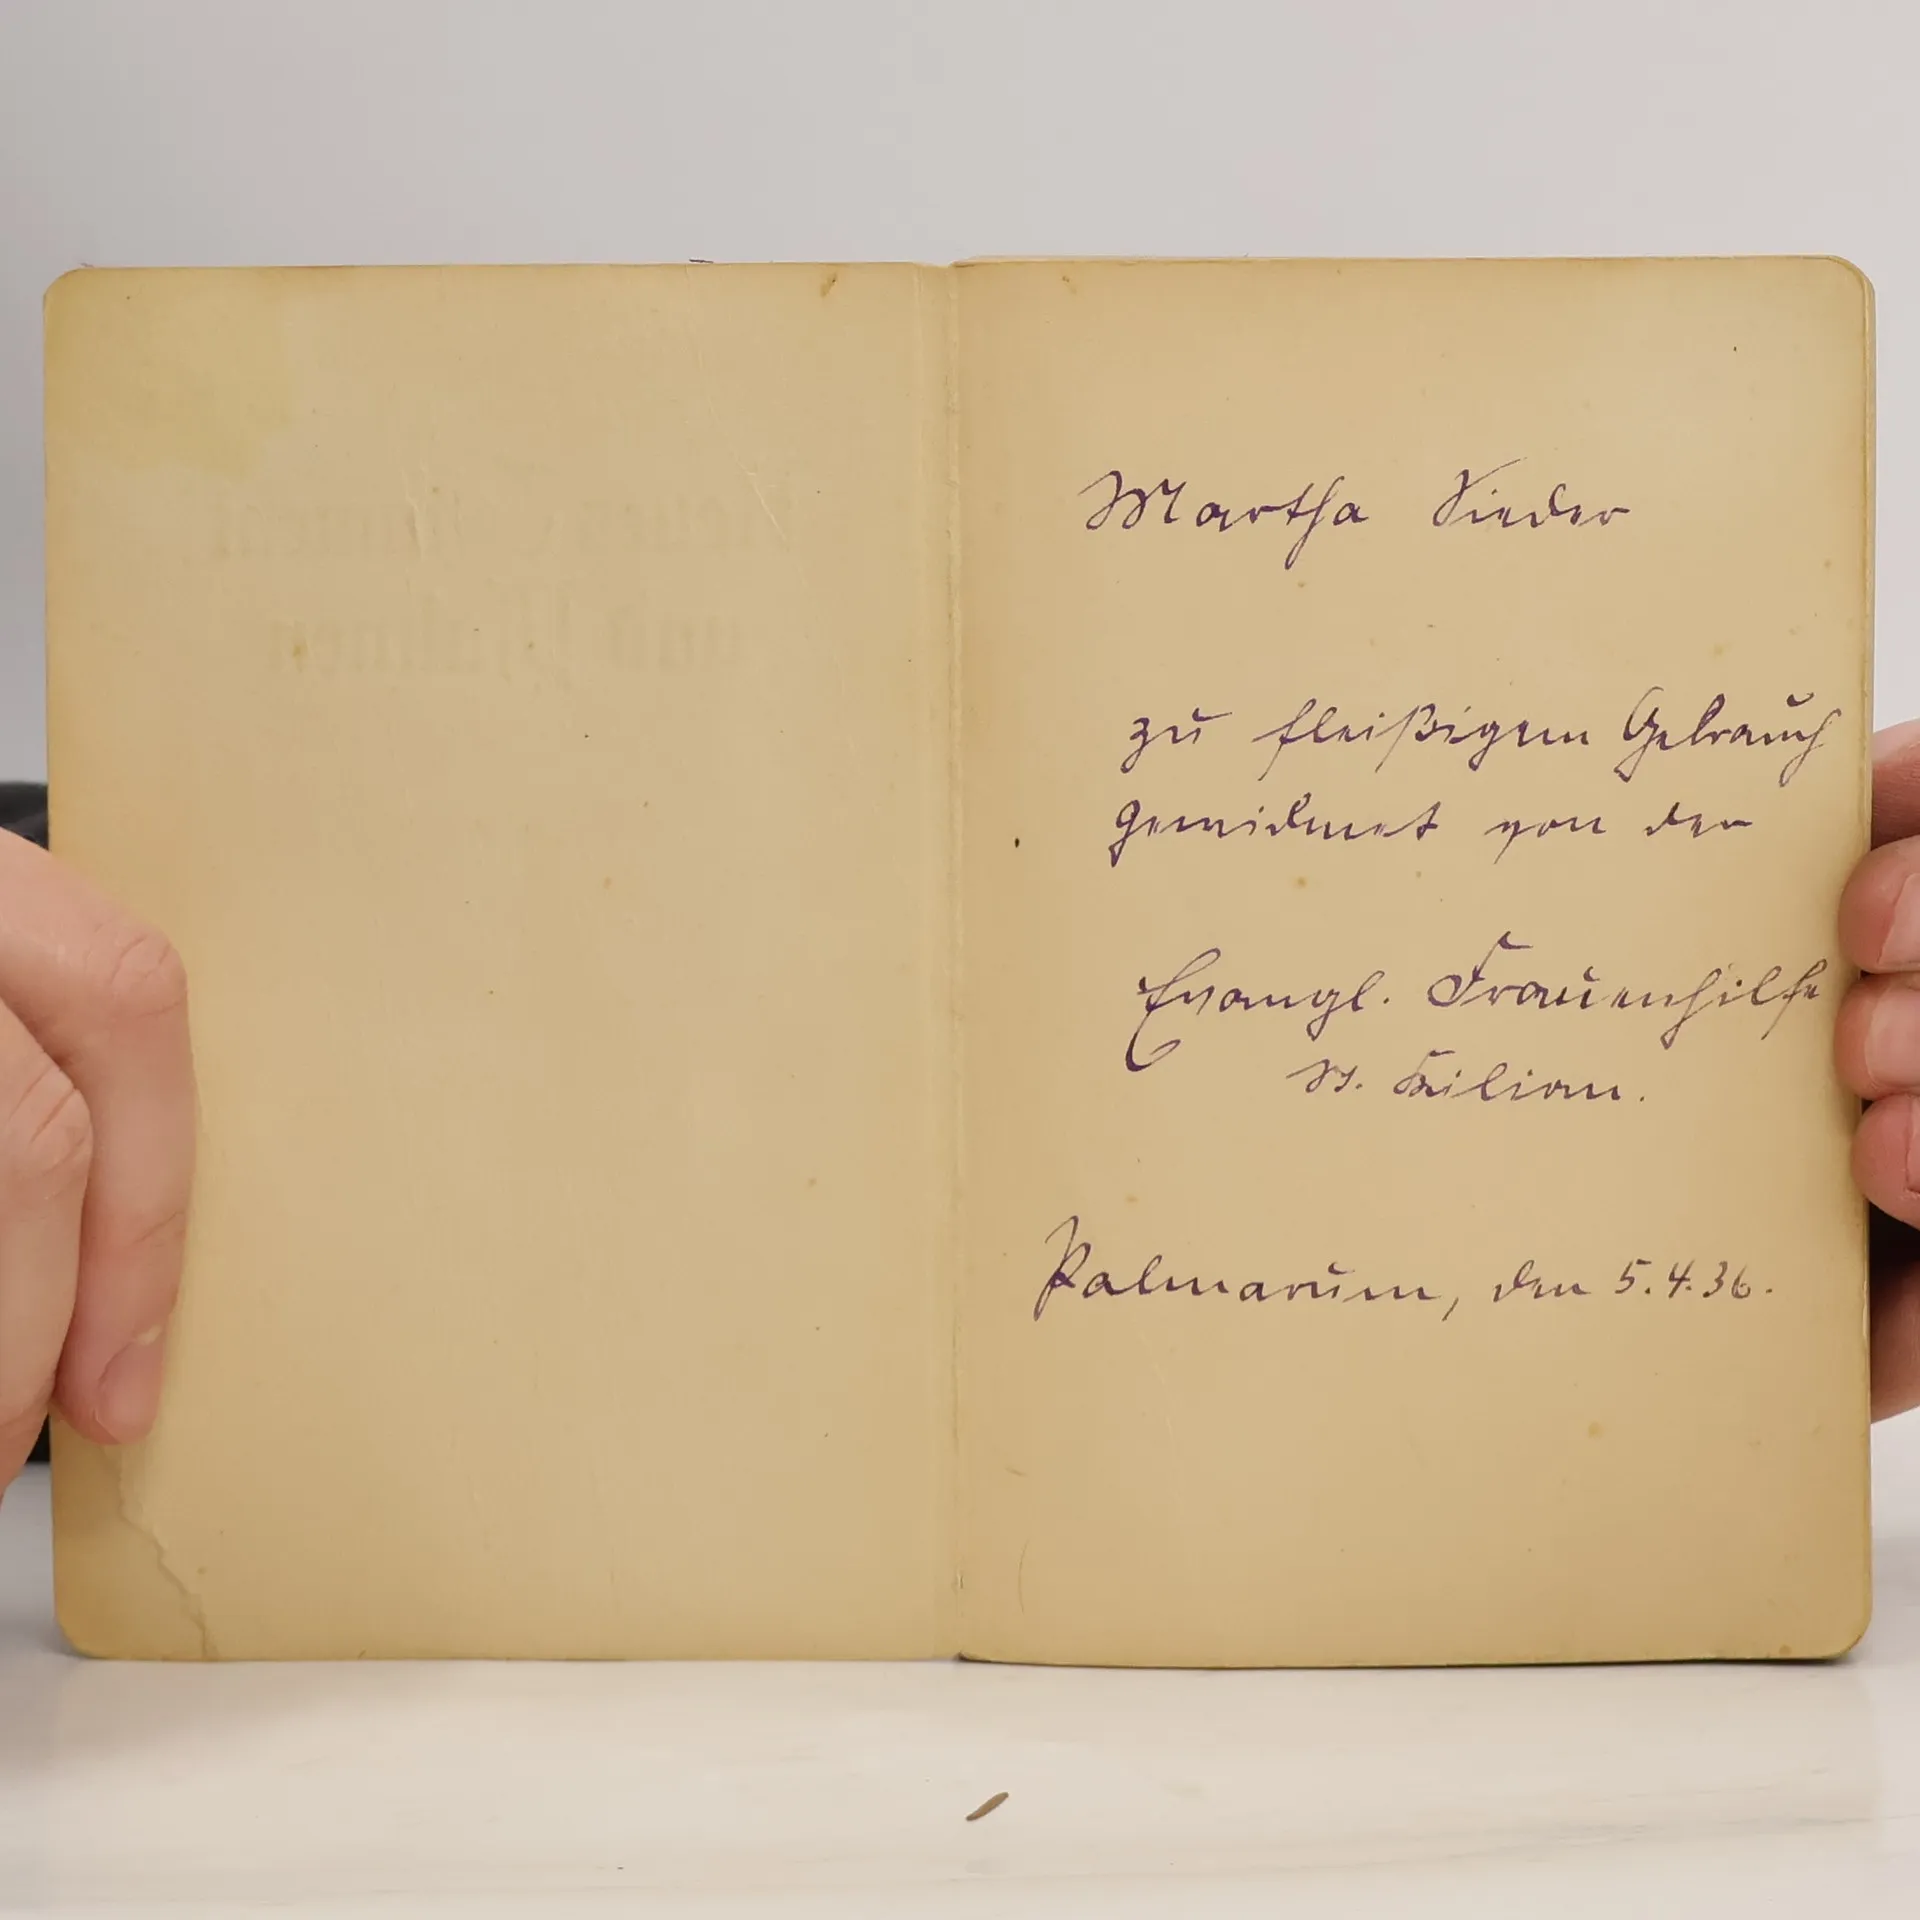 Martha Sieder
zu fleißigem Gebrauch
gewidmet von der
Evangl. Frauenhilfe
St. Kilian.
Palmarum, den 5.4.36.